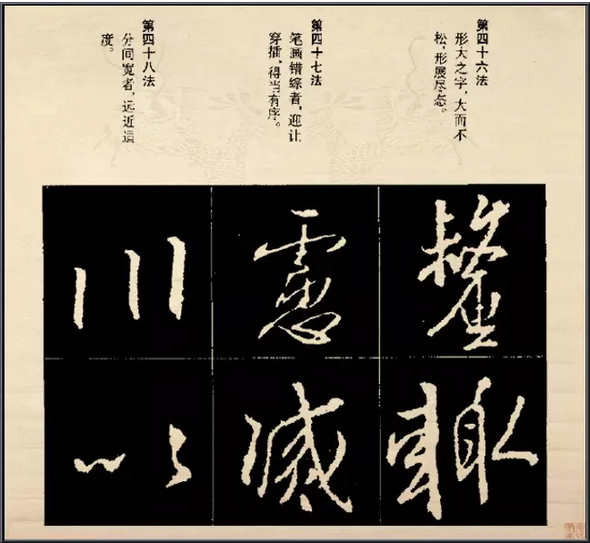 第四十六法
形大之字，大而不
松，形展尽态。
第四十七法
笔画错综者，迎让
穿插，得当有序。
第四十八法
分间宽者，远近适
度。
輙
川
以